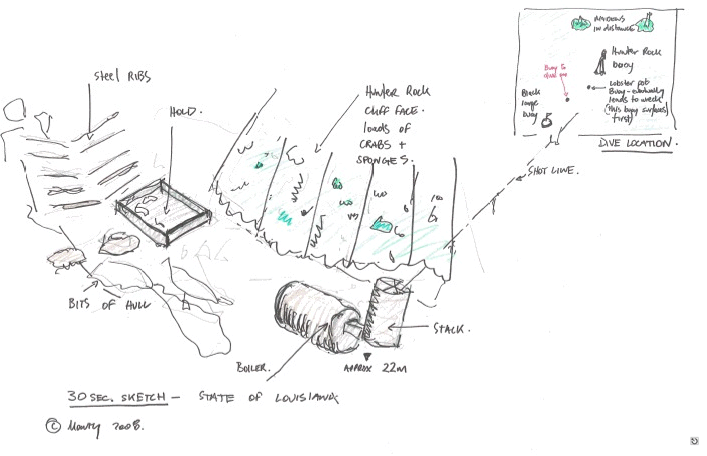 Steel RIBS
HOLD.
Hunter Rock
CLIFF FACE.
loads of
CRABS +
SPONGES.
MAIDENS
IN DISTANCE
Hunter Rock
buoy
Buoy to
dive on
Lobster pot
Buoy - eventually
leads to wreck
(this buoy surfaces
first)
Black
large
buoy
DIVE LOCATION.
SHOT LINE.
BITS OF HULL
BOILER.
STACK.
APPROX 22m
30 SEC. SKETCH - STATE OF LOUISIANA
© 2008.